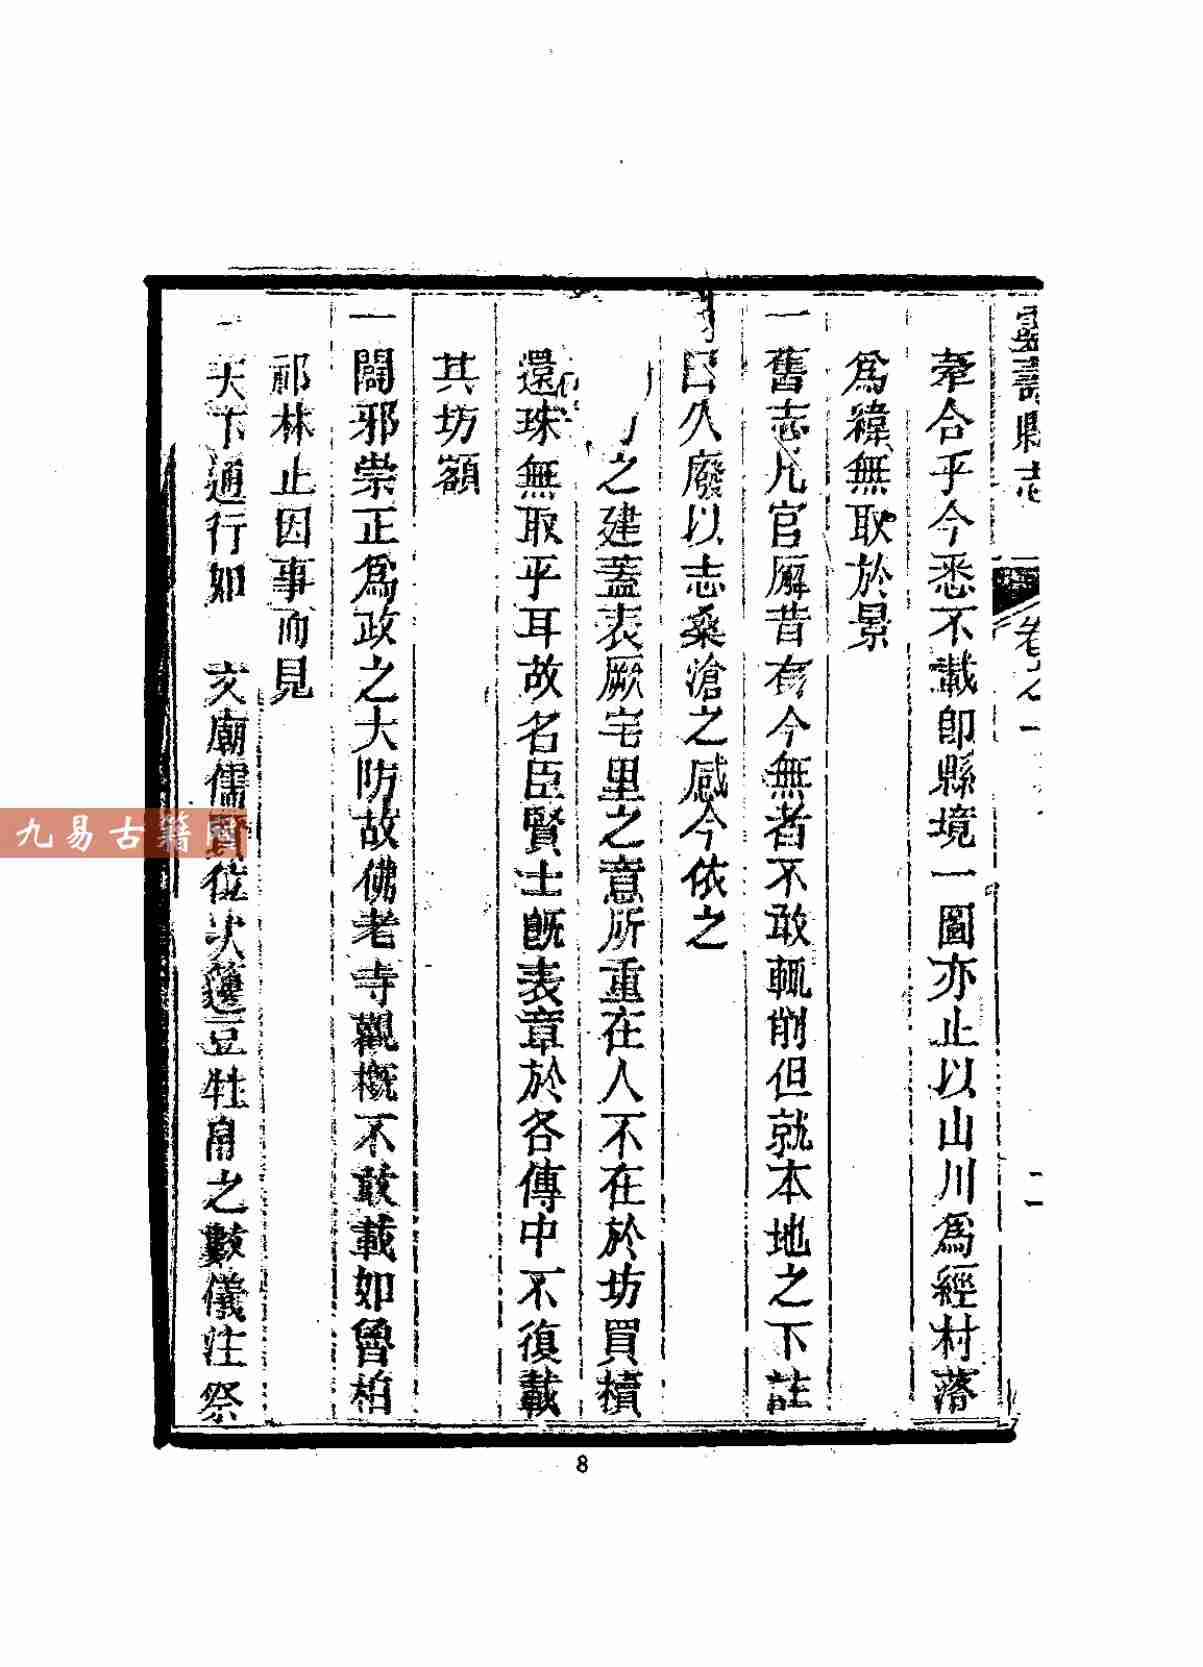 靈壽縣志
卷之一
二
牽合乎今悉不載即縣境一圖亦止以山川爲經村落
爲緯無取於景
一舊志凡官廨昔有今無者不敢輒削但就本地之下註
曰久廢以志桑滄之感今依之
之建蓋表厥宅里之意所重在人不在於坊買櫝
還珠無取乎耳故名臣賢士旣表章於各傳中不復載
其坊額
一闢邪崇正爲政之大防故佛老寺觀槪不敢載如魯柏
祁林止因事而見
一天下通行如 文廟儒賢位次籩豆牲帛之數儀注祭
8
九易古籍网